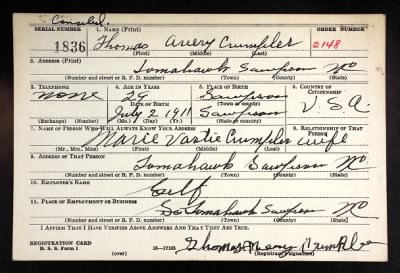 Canceled.
SERIAL NUMBER 1. NAME (Print) ORDER NUMBER
1836 Thomas Avery Crumpler 2148
(First) (Middle) (Last)
2. ADDRESS (Print)
Tomahawk Sampson NC
(Number and street or R. F. D. number) (Town) (County) (State)
3. TELEPHONE 4. AGE IN YEARS 5. PLACE OF BIRTH 6. COUNTRY OF CITIZENSHIP
none 29 Sampson
DATE OF BIRTH (Town or county)
July 2 1911 Sampson U.S.A.
(Exchange) (Number) (Mo.) (Day) (Yr.) (State or country)
7. NAME OF PERSON WHO WILL ALWAYS KNOW YOUR ADDRESS 8. RELATIONSHIP OF THAT PERSON
Marie Vastie Crumpler wife
(Mr., Mrs., Miss) (First) (Middle) (Last)
9. ADDRESS OF THAT PERSON
Tomahawk Sampson NC
(Number and street or R. F. D. number) (Town) (County) (State)
10. EMPLOYER'S NAME
Self
11. PLACE OF EMPLOYMENT OR BUSINESS
Tomahawk Sampson NC
(Number and street or R. F. D. number) (Town) (County) (State)
I AFFIRM THAT I HAVE VERIFIED ABOVE ANSWERS AND THAT THEY ARE TRUE.
REGISTRATION CARD
D. S. S. Form 1 16—17105 Thomas Avery Crumpler
(Registrant's signature)